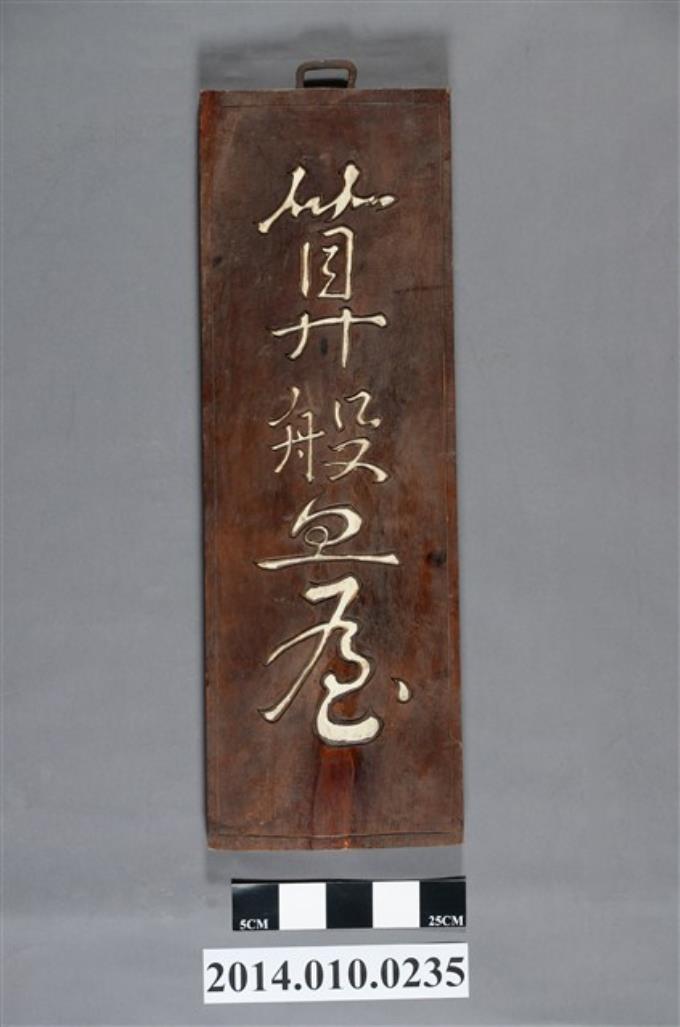 算盤屋
5CM
25CM
2014.010.0235